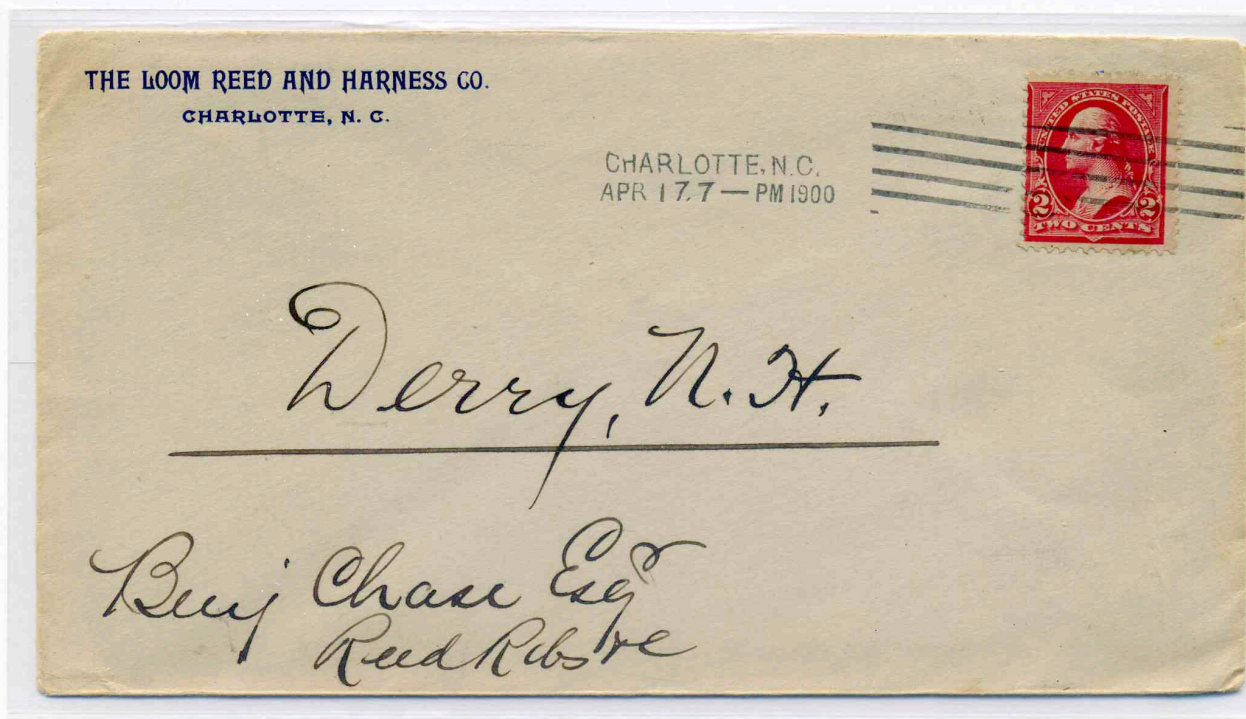 THE LOOM REED AND HARNESS CO.
CHARLOTTE, N. C.
CHARLOTTE, N.C.
APR 17. 7 — PM 1900
UNITED STATES POSTAGE
2 2
TWO CENTS
Derry, N. H.
Benj Chase Esq
Reed Ribs &c